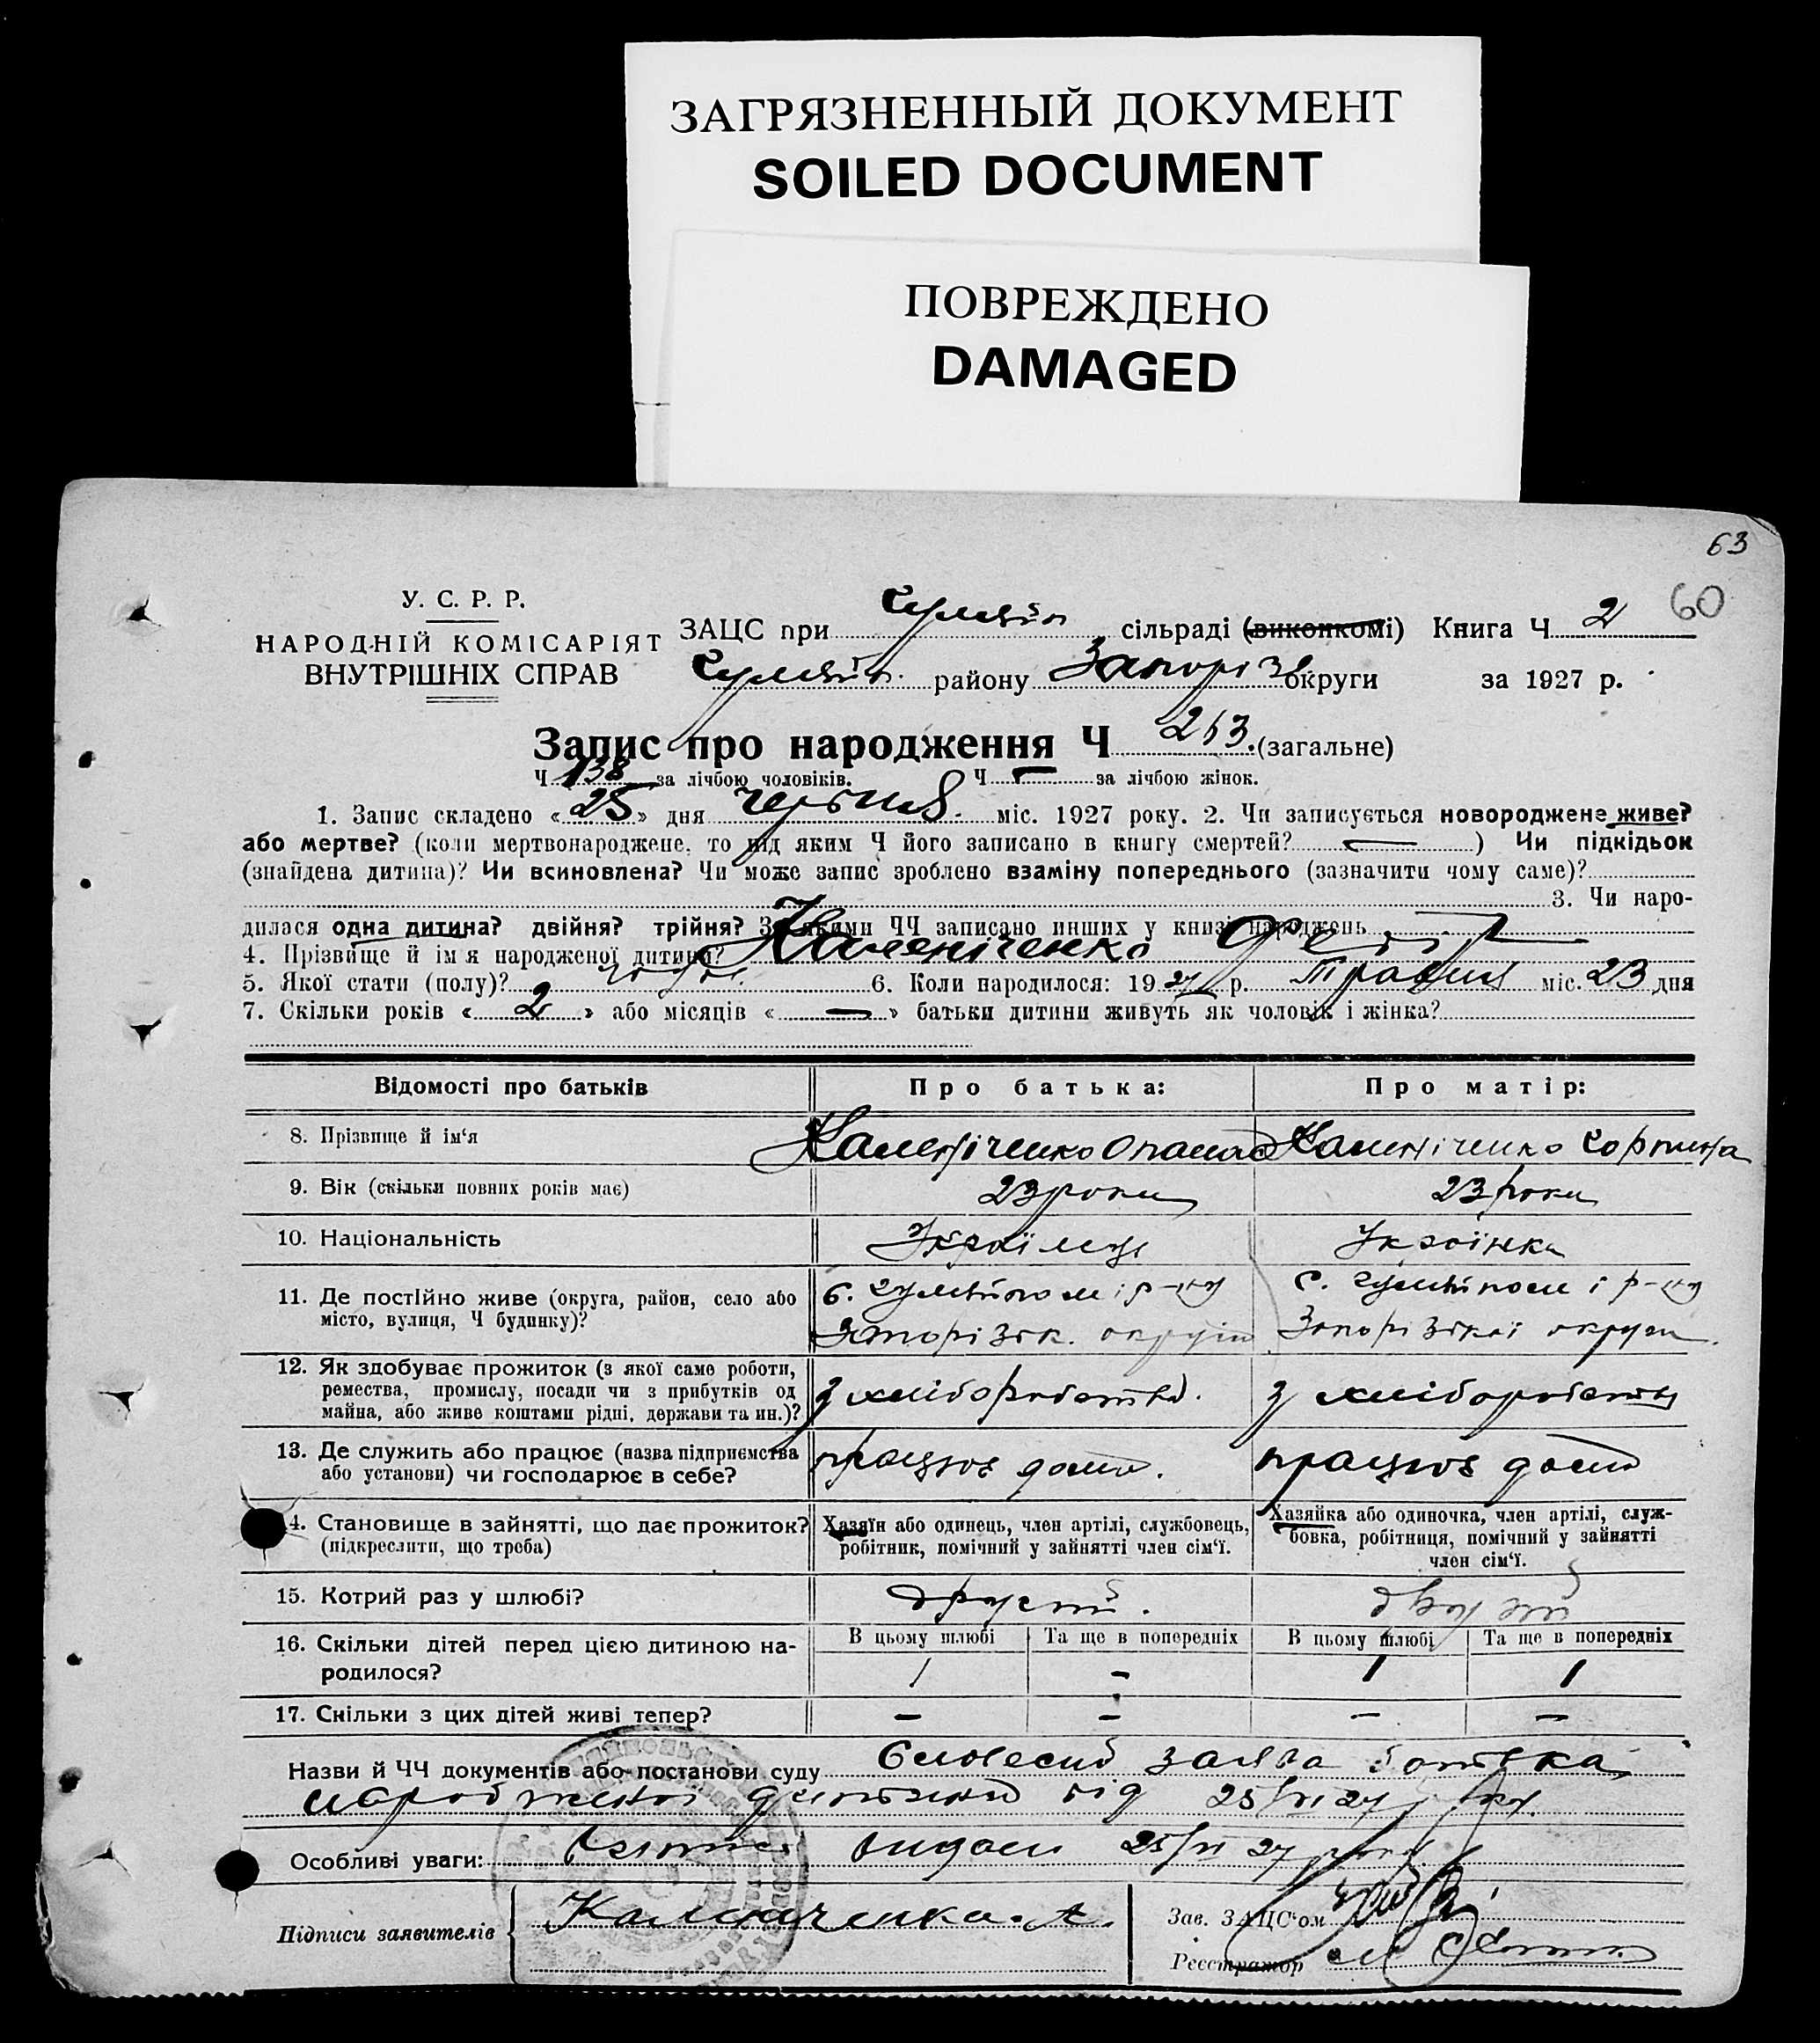 ЗАГРЯЗНЕННЫЙ ДОКУМЕНТ
SOILED DOCUMENT
ПОВРЕЖДЕНО
DAMAGED
63
60
У. С. Р. Р.
НАРОДНІЙ КОМІСАРІЯТ
ВНУТРІШНІХ СПРАВ
ЗАЦС при сільраді (виконкомі) Книга Ч 2
району Запоріз округи за 1927 р.
Запис про народження Ч 263. (загальне)
Ч 138 за лічбою чоловіків. Ч — за лічбою жінок.
1. Запис складено «25» дня червня міс. 1927 року. 2. Чи записується новороджене живе?
або мертве? (коли мертвонароджене, то під яким Ч його записано в книгу смертей? — ) Чи підкідьок
(знайдена дитина)? Чи всиновлена? Чи може запис зроблено взаміну попереднього (зазначити чому саме)?
3. Чи наро-
дилася одна дитина? двійня? трійня? За якими ЧЧ записано инших у книзі народжень
4. Прізвище й ім'я народженої дитини? Каленіченко
5. Якої стати (полу)? 6. Коли народилося: 1927 р. травня міс. 23 дня
7. Скільки років «2» або місяців «—» батьки дитини живуть як чоловік і жінка?
Відомості про батьків Про батька: Про матір:
8. Прізвище й ім'я Каленіченко Опанас Каленіченко
9. Вік (скільки повних років має) 23 роки 23 роки
10. Національність Українець Українка
11. Де постійно живе (округа, район, село або
місто, вулиця, Ч будинку)? с. р-ну Запорізьк. округи с. р-ну Запорізької округи
12. Як здобуває прожиток (з якої саме роботи,
ремества, промислу, посади чи з прибутків од
майна, або живе коштами рідні, держави та ин.)? з хліборобства. з хліборобства
13. Де служить або працює (назва підприємства
або установи) чи господарює в себе? працює дома. працює дома
14. Становище в зайнятті, що дає прожиток?
(підкреслити, що треба)
Хазяїн або одинець, член артілі, службовець,
робітник, помічний у зайнятті член сім'ї.
Хазяйка або одиночка, член артілі, служ-
бовка, робітниця, помічний у зайнятті
член сім'ї.
15. Котрий раз у шлюбі? другий. другий
16. Скільки дітей перед цією дитиною на-
родилося?
В цьому шлюбі Та ще в попередніх В цьому шлюбі Та ще в попередніх
1 - 1 1
17. Скільки з цих дітей живі тепер? - - - -
Назви й ЧЧ документів або постанови суду Словесна заява батька
народженої дитини від 25/VI 27 року.
Особливі уваги: видано 25/VI 27 року
Підписи заявителів Каленіченко А.
Зав. ЗАЦС'ом
Реєстратор